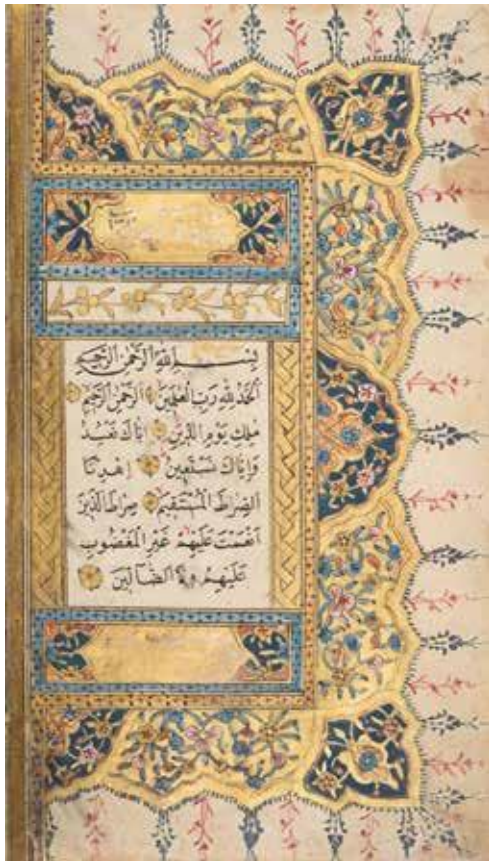 بسم الله الرحمن الرحيم
الحمد لله رب العلمين الرحمن الرحيم
ملك يوم الدين اياك نعبد
واياك نستعين اهدنا
الصراط المستقيم صراط الذين
انعمت عليهم غير المغضوب
عليهم ولا الضالين